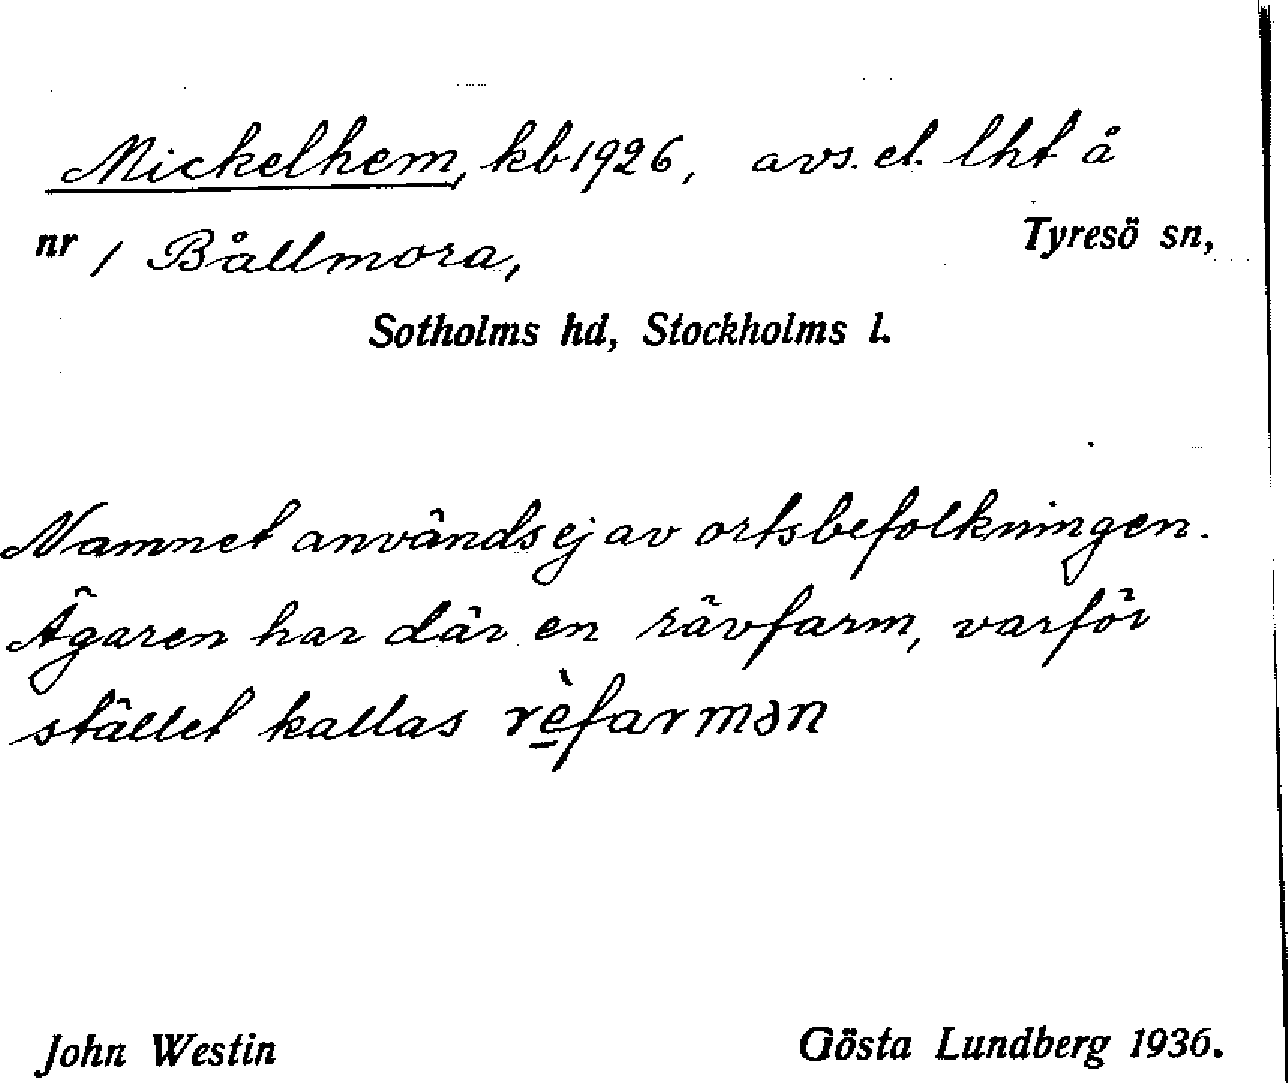 Mickelhem, kb 1926, avs. el. lht å
nr 1 Bållmora, Tyresö sn,
Sotholms hd, Stockholms l.
Namnet används ej av ortsbefolkningen.
Ägaren har där en rävfarm, varför
stället kallas rè̱farmən
John Westin Gösta Lundberg 1936.